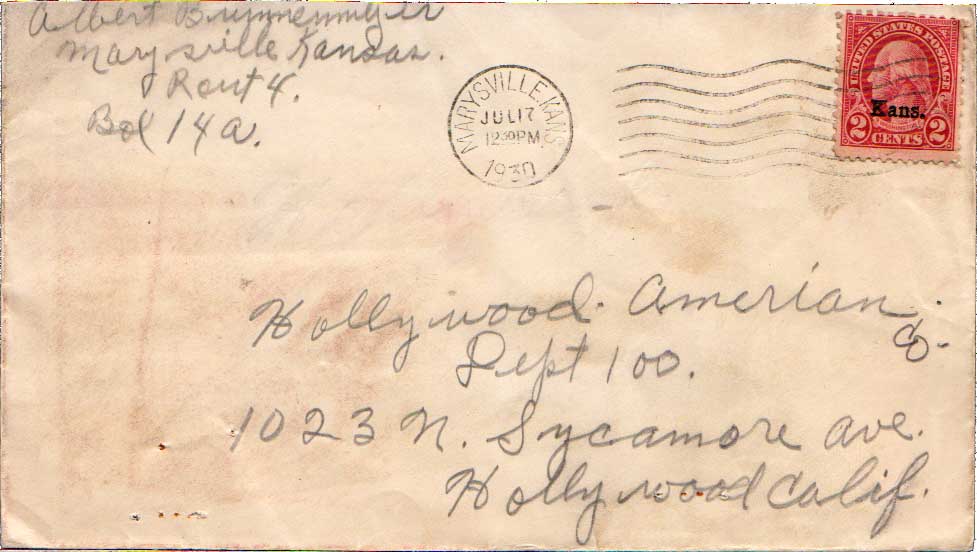 Albert Brunnenmyer
Marysville Kansas.
Rout 4.
Box 14a.
MARYSVILLE, KANS
JUL 17
12 30 PM
1930
UNITED STATES POSTAGE
Kans.
2 CENTS 2
Hollywood American
Co.
Dept 100.
1023 N. Sycamore ave.
Hollywood Calif.